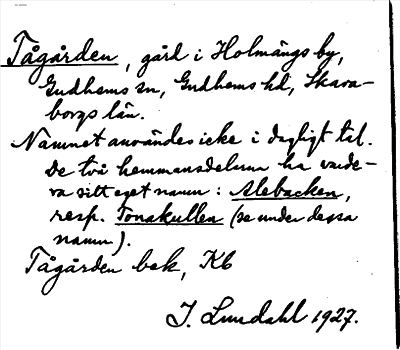 Tågården, gård i Holmängs by,
Gudhems sn, Gudhems hd, Skara-
borgs län.
Namnet användes icke i dagligt tal.
De två hemmansdelarna ha varde-
ra sitt eget namn: Alebacken,
resp. Tonakullen (se under dessa
namn).
Tågården bek, Kb
J. Lundahl 1927.